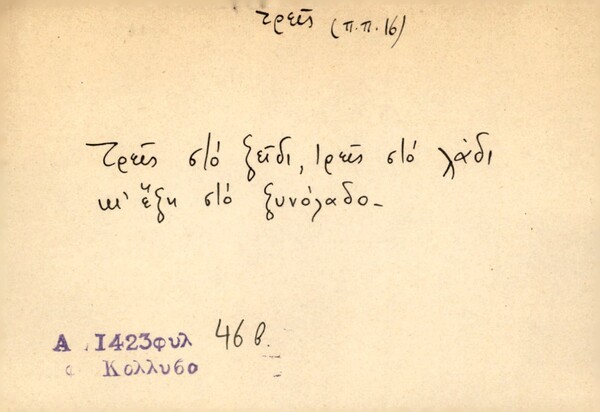 τρεῖς (π.π. 16)
Τρεῖς στό ξεῖδι, τρεῖς στό λάδι
κι' ἕξη στό ξυνόλαδο_
Α .1423φυλ 46 β.
Κολλυβο